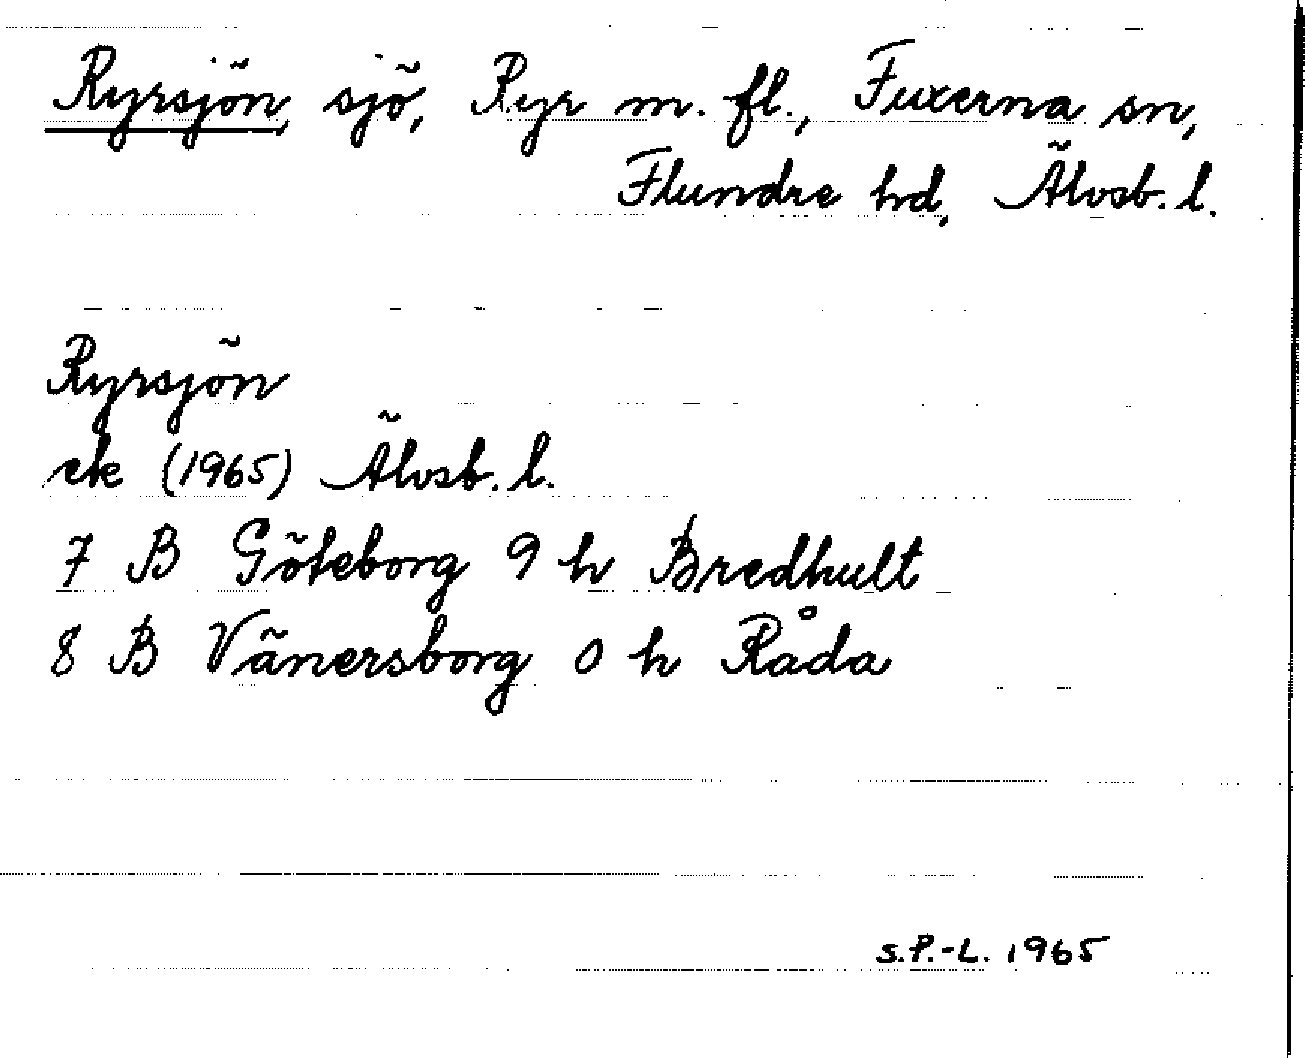 Ryrsjön, sjö, Ryr m. fl., Fuxerna sn,
Flundre hd, Älvsb. l.
Ryrsjön
ek (1965) Älvsb. l.
7 B Göteborg 9 h Bredhult
8 B Vänersborg 0 h Råda
S.P.-L. 1965